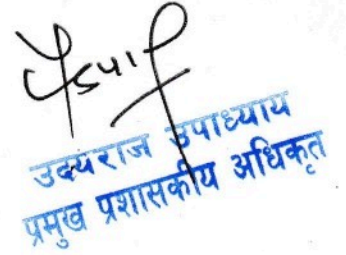 उदयराज उपाध्याय
प्रमुख प्रशासकीय अधिकृत